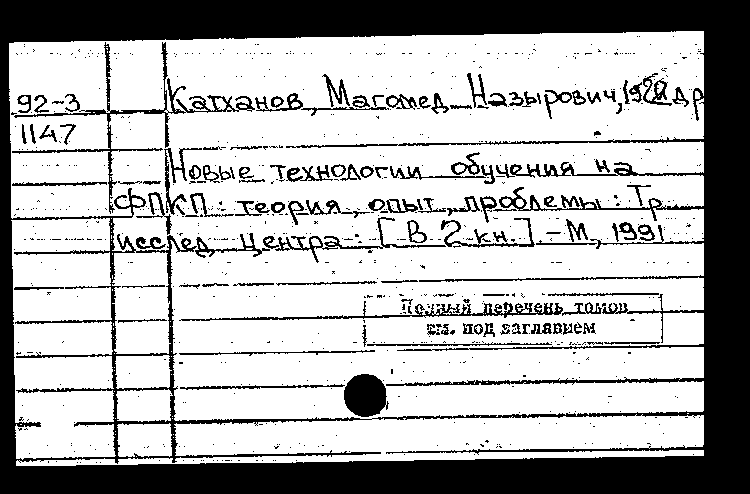 92-3 Катханов, Магомед Назырович, и др
1147
Новые технологии обучения на
ФПКП: теория, опыт, проблемы: Тр
исслед центра: [В 2 кн.] - М, 1991
Полный перечень томов
см. под заглавием